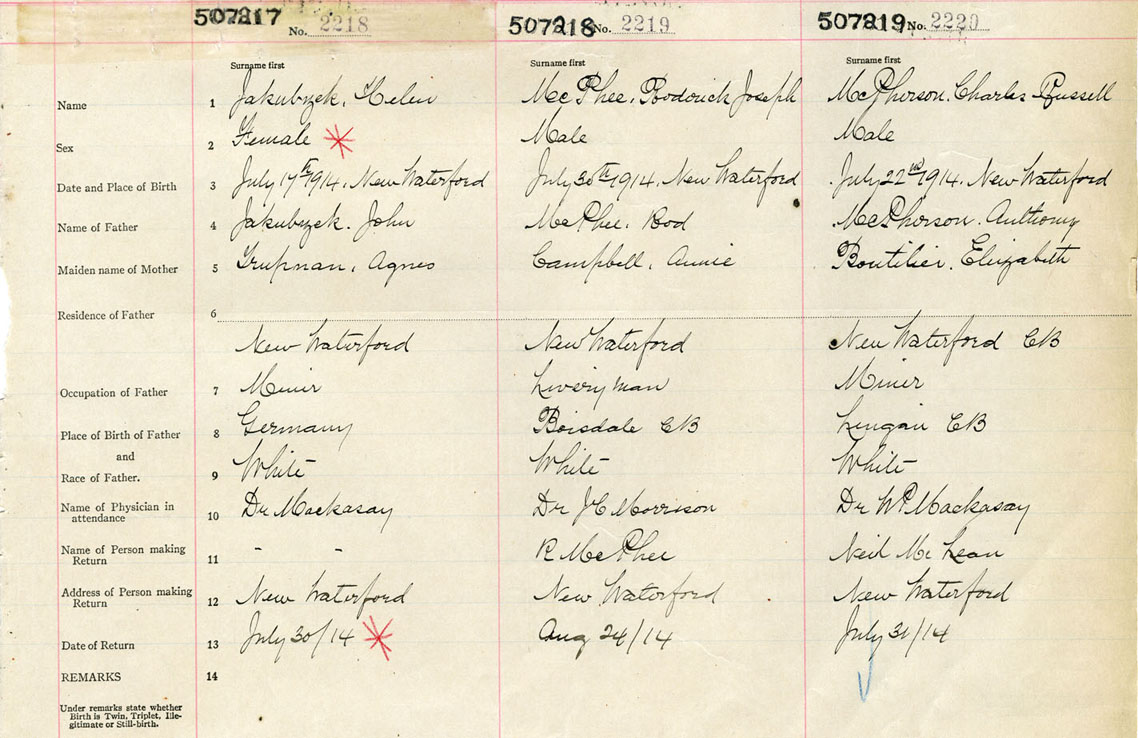 507217 No. 2218 507218 No. 2219 507219 No. 2220
Surname first Surname first Surname first
Name 1 Jakubyek, Helen McPhee, Roderick Joseph McPherson, Charles Russell
Sex 2 Female Male Male
Date and Place of Birth 3 July 17th 1914. New Waterford July 30th 1914. New Waterford July 22nd 1914. New Waterford
Name of Father 4 Jakubyek. John McPhee, Rod McPherson. Anthony
Maiden name of Mother 5 Trupnan, Agnes Campbell, Annie Boutilier, Elizabeth
Residence of Father 6
New Waterford New Waterford New Waterford CB
Occupation of Father 7 Miner Liveryman Miner
Place of Birth of Father 8 Germany Boisdale CB Lingan CB
and
Race of Father. 9 White White White
Name of Physician in
attendance 10 Dr Mackasay Dr J C Morrison Dr W P Mackasay
Name of Person making
Return 11 - - R McPhee Neil McLean
Address of Person making
Return 12 New Waterford New Waterford New Waterford
Date of Return 13 July 30/14 Aug 24/14 July 31/14
REMARKS 14
Under remarks state whether
Birth is Twin, Triplet, Ille-
gitimate or Still-birth.